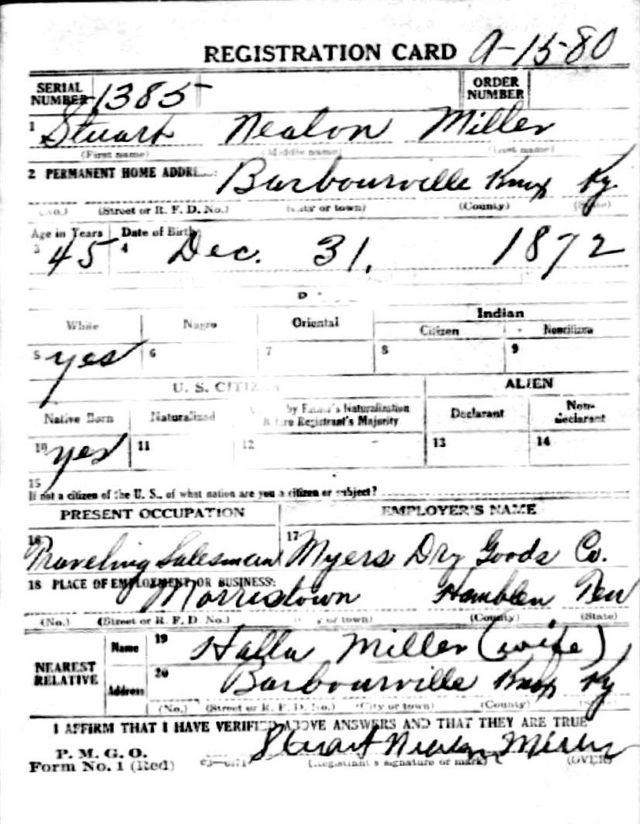 REGISTRATION CARD A-15-80
SERIAL NUMBER 1385 ORDER NUMBER
1 Stuart Nealon Miller
(First name) (Middle name) (Last name)
2 PERMANENT HOME ADDRE Barbourville Knox Ky.
(No.) (Street or R. F. D. No.) (City or town) (County) (State)
Age in Years Date of Birth
3 45 4 Dec. 31, 1872
White Negro Oriental Indian
Citizen Noncitizen
5 yes 6 7 8 9
U. S. CITIZ ALIEN
Native Born Naturalized by Father's Naturalization Before Registrant's Majority Declarant Non-declarant
10 yes 11 12 13 14
15
If not a citizen of the U. S., of what nation are you a citizen or subject?
PRESENT OCCUPATION EMPLOYER'S NAME
16 Traveling Salesman 17 Myers Dry Goods Co.
18 PLACE OF EMPLOYMENT OR BUSINESS:
Morristown Hamblen Ten
(No.) (Street or R. F. D. No.) (City or town) (County) (State)
NEAREST RELATIVE
Name 19 Halla Miller (wife)
Address 20 Barbourville Knox Ky
(No.) (Street or R. F. D. No.) (City or town) (County)
I AFFIRM THAT I HAVE VERIFIED ABOVE ANSWERS AND THAT THEY ARE TRUE
P. M. G. O.
Form No. 1 (Red) Stuart Nealon Miller
(Registrant's signature or mark) (OVER)